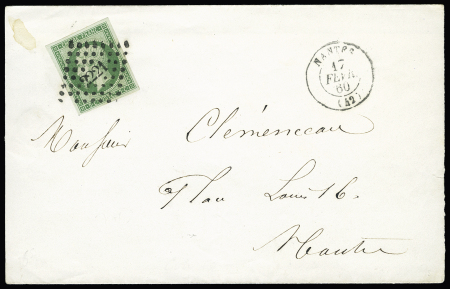 2221
NANTES
17
FEVR.
60
(42)
Monsieur
Clémenceau
Place Louis 16.
Nantes